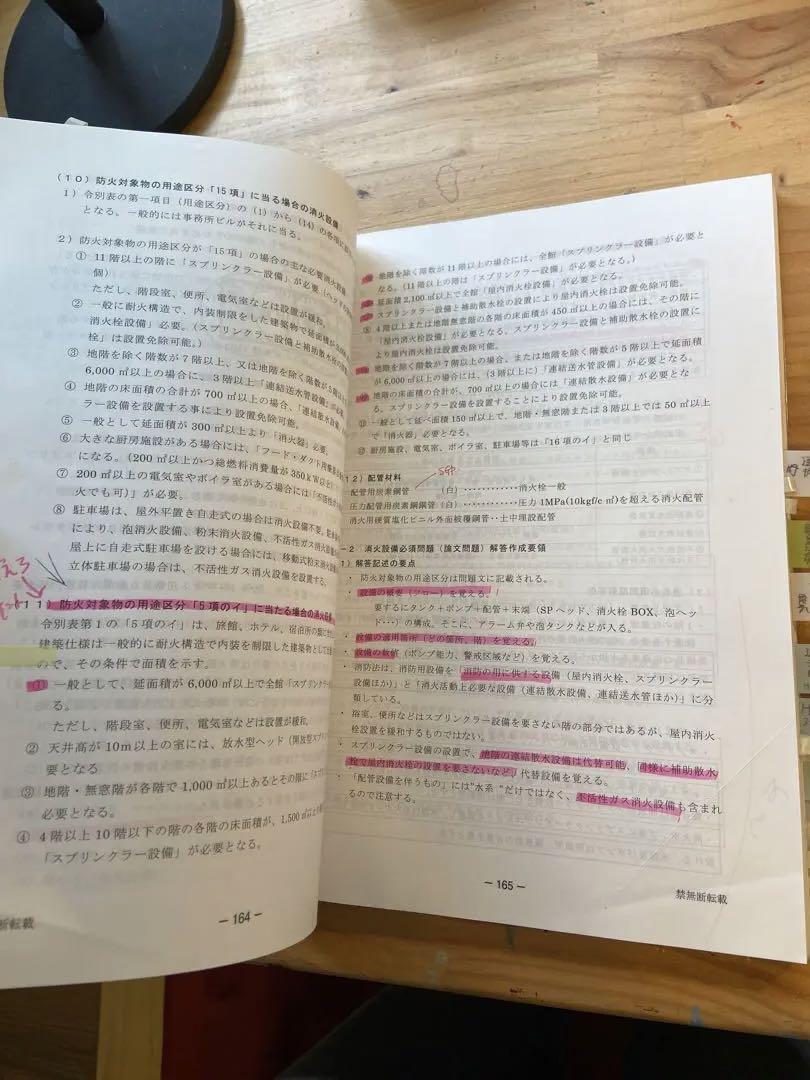 (10) 防火対象物の用途区分「15項」に当る場合の消火設備
1) 令別表の第一項目(用途区分)の(1)から(14)の各項に
となる。一般的には事務所ビルがそれに当る。
2) 防火対象物の用途区分が「15項」の場合の主な必要消火設備
① 11階以上の階に「スプリンクラー設備」が必要
個)
ただし、階段室、便所、電気室などは設置が緩和。
② 一般に耐火構造で、内装制限をした建築物で延面積が
消火栓設備」必要。(スプリンクラー設備と補助散水栓の
栓」は設置免除可能。)
③ 地階を除く階数が7階以上、又は地階を除く階数が5階
6,000㎡以上の場合に、3階以上「連結送水管設備」
④ 地階の床面積の合計が700㎡以上の場合、「連結散水設備」
ラー設備を設置する事により設置免除可能。
⑤ 一般として延面積が300㎡以上より「消火器」必要。
⑥ 大きな厨房施設がある場合には、「フード・ダクト用簡易
になる。(200㎡以上かつ総燃料消費量が350kW以上
⑦ 200㎡以上の電気室やボイラ室がある場合には「不活性ガス
火でも可)」が必要。
⑧ 駐車場は、屋外平置き自走式の場合は消火設備不要。
により、泡消火設備、粉末消火設備、不活性ガス消火設備
屋上に自走式駐車場を設ける場合には、移動式粉末消火
立体駐車場の場合は、不活性ガス消火設備を設置する。
(11) 防火対象物の用途区分「5項のイ」に当たる場合の消火設備
令別表第1の「5項のイ」は、旅館、ホテル、宿泊所の類
建築仕様は一般的に耐火構造で内装を制限した建築物として
ので、その条件で面積を示す。
① 一般として、延面積が6,000㎡以上で全館「スプリンクラー
る。
ただし、階段室、便所、電気室などは設置が緩和。
② 天井高が10m以上の室には、放水型ヘッド(開放型スプ
要となる。
③ 地階・無窓階が各階で1,000㎡以上あるとその階に「スプ
必要となる。
④ 4階以上10階以下の階の各階の床面積が、1,500㎡以上
「スプリンクラー設備」が必要となる。
- 164 -
断転載
地階を除く階数が11階以上の場合には、全館「スプリンクラー設備」が必要と
なる。(11階以上の階は「スプリンクラー設備」が必要となる。)
延面積2,100㎡以上で全館「屋内消火栓設備」が必要となる。
スプリンクラー設備と補助散水栓の設置により屋内消火栓は設置免除可能。
⑧ 4階以上または地階無窓階の各階の床面積が450㎡以上の場合には、その階に
「屋内消火栓設備」が必要となる。スプリンクラー設備と補助散水栓の設置に
より屋内消火栓は設置免除可能。
地階を除く階数が7階以上の場合、または地階を除く階数が5階以上で延面積
が6,000㎡以上の場合には、(3階以上に)「連結送水管設備」が必要となる。
地階の床面積の合計が、700㎡以上の場合には「連結散水設備」が必要とな
る。スプリンクラー設備を設置することにより設置免除可能。
⑪ 一般として延べ面積150㎡以上で、地階・無窓階または3階以上では50㎡以上
で「消火器」必要となる。
⑫ 厨房施設、電気室、ボイラ室、駐車場等は「16項のイ」と同じ
SGP
12) 配管材料
配管用炭素鋼管 (白)…………消火栓一般
圧力配管用炭素鋼鋼管(白)…………圧力1MPa(10kgf/c㎡)を超える消火配管
消火用硬質塩化ビニル外面被覆鋼管‥土中埋設配管
-2 消火設備必須問題(論文問題)解答作成要領
1) 解答記述の要点
・防火対象物の用途区分は問題文に記載される。
・設備の概要(フロー)を覚える。
要するにタンク+ポンプ+配管+末端(SPヘッド、消火栓BOX、泡ヘッ
ド…)の構成。そこに、アラーム弁や泡タンクなどが入る。
・設備の適用箇所(どの箇所、階)を覚える。
・設備の数値(ポンプ能力、警戒区域など)を覚える。
・消防法は、消防用設備を「消防の用に供する設備(屋内消火栓、スプリンクラー
設備ほか)」と「消火活動上必要な設備(連結散水設備、連結送水管ほか)」に分
類している。
・浴室、便所などはスプリンクラー設備を要さない階の部分ではあるが、屋内消火
栓設置を緩和するものではない。
・スプリンクラー設備の設置で、地階の連結散水設備は代替可能、同様に補助散水
栓で屋内消火栓の設置を要さないなど、代替設備を覚える。
・「配管設備を伴うもの」には"水系"だけではなく、不活性ガス消火設備も含まれ
るので注意する。
- 165 -
禁無断転載